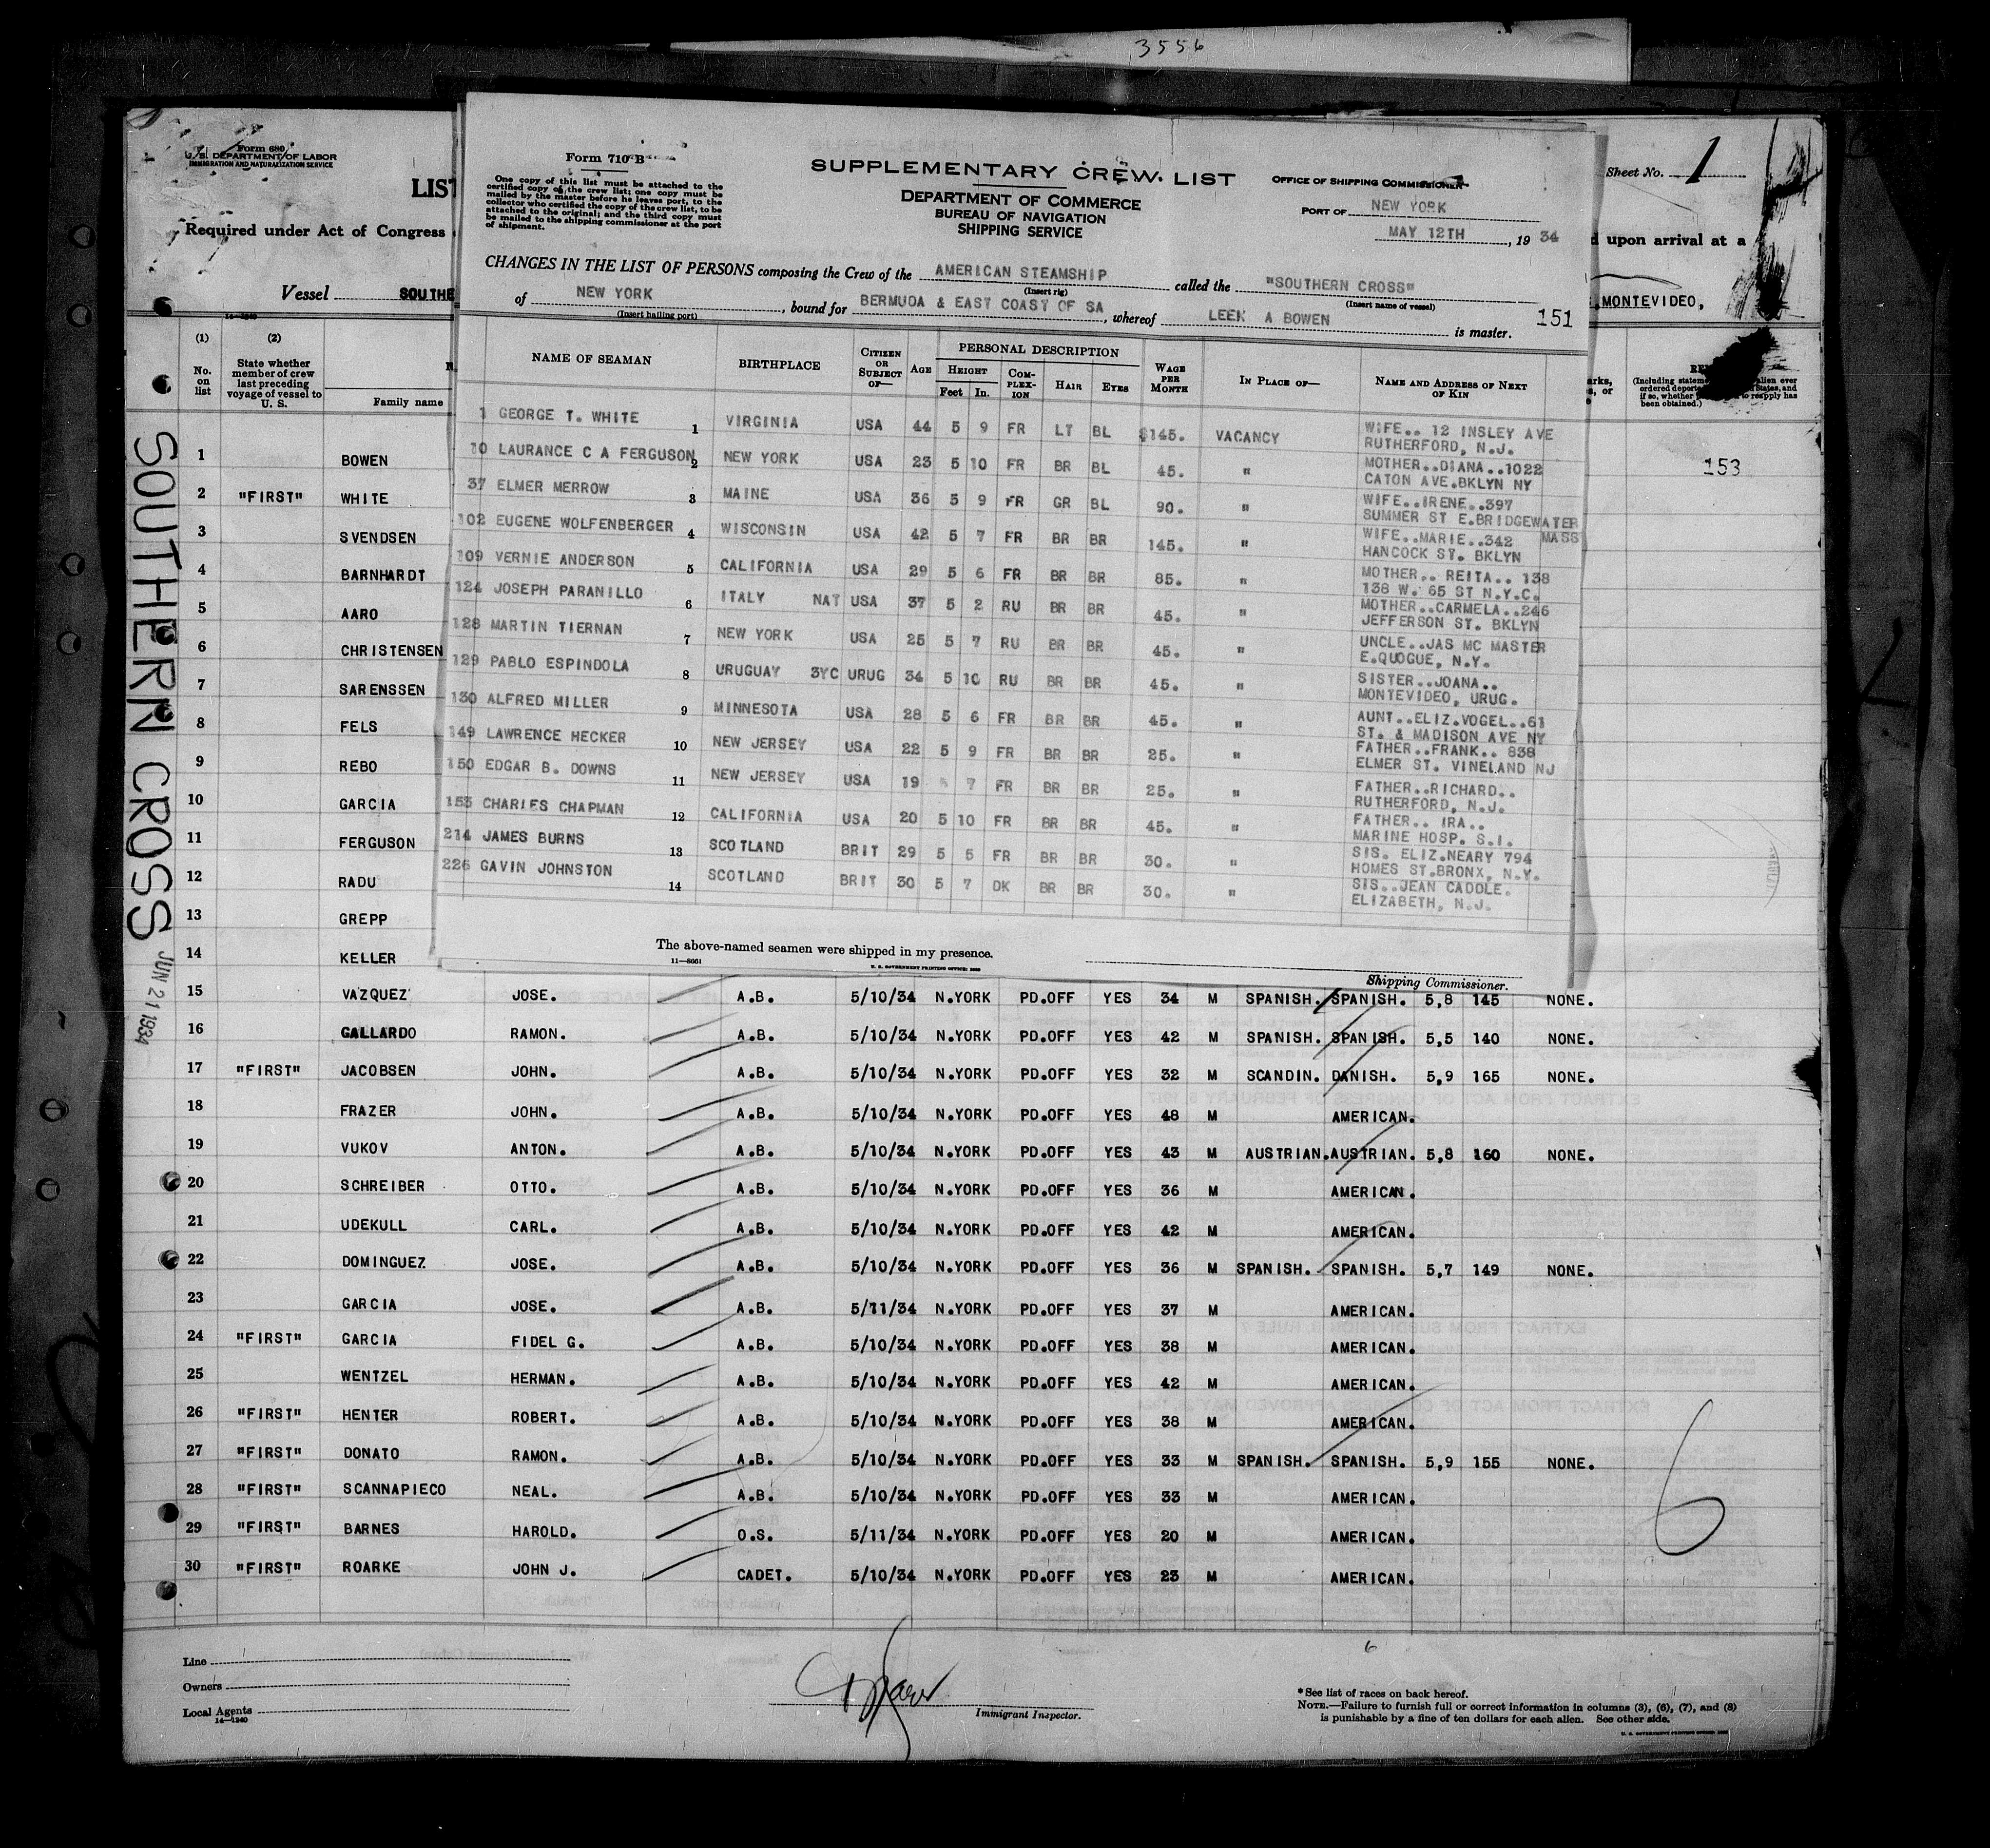 3556
Form 680
U. S. DEPARTMENT OF LABOR
IMMIGRATION AND NATURALIZATION SERVICE
LIST
Required under Act of Congress
Vessel SOUTHE
Sheet No. 1
upon arrival at a
MONTEVIDEO,
Form 710-B
One copy of this list must be attached to the
certified copy of the crew list; one copy must be
mailed by the master before he leaves port, to the
collector who certified the copy of the crew list, to be
attached to the original; and the third copy must
be mailed to the shipping commissioner at the port
of shipment.
SUPPLEMENTARY CREW LIST
DEPARTMENT OF COMMERCE
BUREAU OF NAVIGATION
SHIPPING SERVICE
OFFICE OF SHIPPING COMMISSIONER
PORT OF NEW YORK
MAY 12TH, 1934
CHANGES IN THE LIST OF PERSONS composing the Crew of the AMERICAN STEAMSHIP called the "SOUTHERN CROSS"
(Insert rig) (Insert name of vessel)
of NEW YORK, bound for BERMUDA & EAST COAST OF SA, whereof LEEK A BOWEN is master.
(Insert hailing port)
151
NAME OF SEAMAN BIRTHPLACE CITIZEN OR SUBJECT OF— AGE PERSONAL DESCRIPTION HEIGHT Feet In. COMPLEXION HAIR EYES WAGE PER MONTH IN PLACE OF— NAME AND ADDRESS OF NEXT OF KIN
1 GEORGE T. WHITE 1 VIRGINIA USA 44 5 9 FR LT BL $145. VACANCY WIFE.. 12 INSLEY AVE
RUTHERFORD, N.J.
10 LAURANCE C A FERGUSON 2 NEW YORK USA 23 5 10 FR BR BL 45. " MOTHER..DIANA..1022
CATON AVE.BKLYN NY
37 ELMER MERROW 3 MAINE USA 36 5 9 FR GR BL 90. " WIFE..IRENE..397
SUMMER ST E.BRIDGEWATER
MASS
102 EUGENE WOLFENBERGER 4 WISCONSIN USA 42 5 7 FR BR BR 145. " WIFE..MARIE..342
HANCOCK ST. BKLYN
109 VERNIE ANDERSON 5 CALIFORNIA USA 29 5 6 FR BR BR 85. " MOTHER.. REITA.. 138
138 W. 65 ST N.Y.C.
124 JOSEPH PARANILLO 6 ITALY NAT USA 37 5 2 RU BR BR 45. " MOTHER..CARMELA..246
JEFFERSON ST. BKLYN
128 MARTIN TIERNAN 7 NEW YORK USA 25 5 7 RU BR BR 45. " UNCLE..JAS MC MASTER
E.QUOGUE, N.Y.
129 PABLO ESPINDOLA 8 URUGUAY 3YC URUG 34 5 10 RU BR BR 45. " SISTER..JOANA..
MONTEVIDEO, URUG.
130 ALFRED MILLER 9 MINNESOTA USA 28 5 6 FR BR BR 45. " AUNT..ELIZ.VOGEL..61
ST. & MADISON AVE NY
149 LAWRENCE HECKER 10 NEW JERSEY USA 22 5 9 FR BR BR 25. " FATHER..FRANK.. 838
ELMER ST. VINELAND NJ
150 EDGAR B. DOWNS 11 NEW JERSEY USA 19 5 7 FR BR BR 25. " FATHER..RICHARD..
RUTHERFORD, N.J.
153 CHARLES CHAPMAN 12 CALIFORNIA USA 20 5 10 FR BR BR 45. " FATHER.. IRA..
MARINE HOSP. S.I.
214 JAMES BURNS 13 SCOTLAND BRIT 29 5 5 FR BR BR 30. " SIS. ELIZ.NEARY 794
HOMES ST.BRONX, N.Y.
226 GAVIN JOHNSTON 14 SCOTLAND BRIT 30 5 7 DK BR BR 30. " SIS..JEAN CADDLE.
ELIZABETH, N.J.
The above-named seamen were shipped in my presence.
11—8061
U. S. GOVERNMENT PRINTING OFFICE: 1932
Shipping Commissioner.
(1) (2)
No. on list
State whether member of crew last preceding voyage of vessel to U. S.
Family name
(Including statement
ordered deported
if so, whether
been obtained.)
153
SOUTHERN CROSS
JUN 21 1934
1 BOWEN
2 "FIRST" WHITE
3 SVENDSEN
4 BARNHARDT
5 AARO
6 CHRISTENSEN
7 SARENSSEN
8 FELS
9 REBO
10 GARCIA
11 FERGUSON
12 RADU
13 GREPP
14 KELLER
15 VAZQUEZ JOSE. A.B. 5/10/34 N.YORK PD.OFF YES 34 M SPANISH. SPANISH. 5,8 145 NONE.
16 GALLARDO RAMON. A.B. 5/10/34 N.YORK PD.OFF YES 42 M SPANISH. SPANISH. 5,5 140 NONE.
17 "FIRST" JACOBSEN JOHN. A.B. 5/10/34 N.YORK PD.OFF YES 32 M SCANDIN. DANISH. 5,9 165 NONE.
18 FRAZER JOHN. A.B. 5/10/34 N.YORK PD.OFF YES 48 M AMERICAN.
19 VUKOV ANTON. A.B. 5/10/34 N.YORK PD.OFF YES 43 M AUSTRIAN. AUSTRIAN. 5,8 160 NONE.
20 SCHREIBER OTTO. A.B. 5/10/34 N.YORK PD.OFF YES 36 M AMERICAN.
21 UDEKULL CARL. A.B. 5/10/34 N.YORK PD.OFF YES 42 M AMERICAN.
22 DOMINGUEZ JOSE. A.B. 5/10/34 N.YORK PD.OFF YES 36 M SPANISH. SPANISH. 5,7 149 NONE.
23 GARCIA JOSE. A.B. 5/11/34 N.YORK PD.OFF YES 37 M AMERICAN.
24 "FIRST" GARCIA FIDEL G. A.B. 5/10/34 N.YORK PD.OFF YES 38 M AMERICAN.
25 WENTZEL HERMAN. A.B. 5/10/34 N.YORK PD.OFF YES 42 M AMERICAN.
26 "FIRST" HENTER ROBERT. A.B. 5/10/34 N.YORK PD.OFF YES 38 M AMERICAN.
27 "FIRST" DONATO RAMON. A.B. 5/10/34 N.YORK PD.OFF YES 33 M SPANISH. SPANISH. 5,9 155 NONE.
28 "FIRST" SCANNAPIECO NEAL. A.B. 5/10/34 N.YORK PD.OFF YES 33 M AMERICAN.
29 "FIRST" BARNES HAROLD. O.S. 5/11/34 N.YORK PD.OFF YES 20 M AMERICAN.
30 "FIRST" ROARKE JOHN J. CADET. 5/10/34 N.YORK PD.OFF YES 23 M AMERICAN.
6
6
Line
Owners
Local Agents
14—1240
Immigrant Inspector.
*See list of races on back hereof.
NOTE.—Failure to furnish full or correct information in columns (3), (6), (7), and (8)
is punishable by a fine of ten dollars for each alien. See other side.